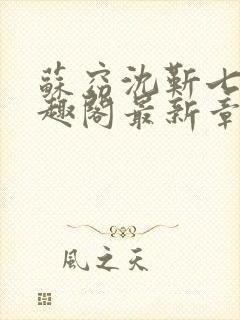 蘇窈沈靳七
趣閣最新章
風之天